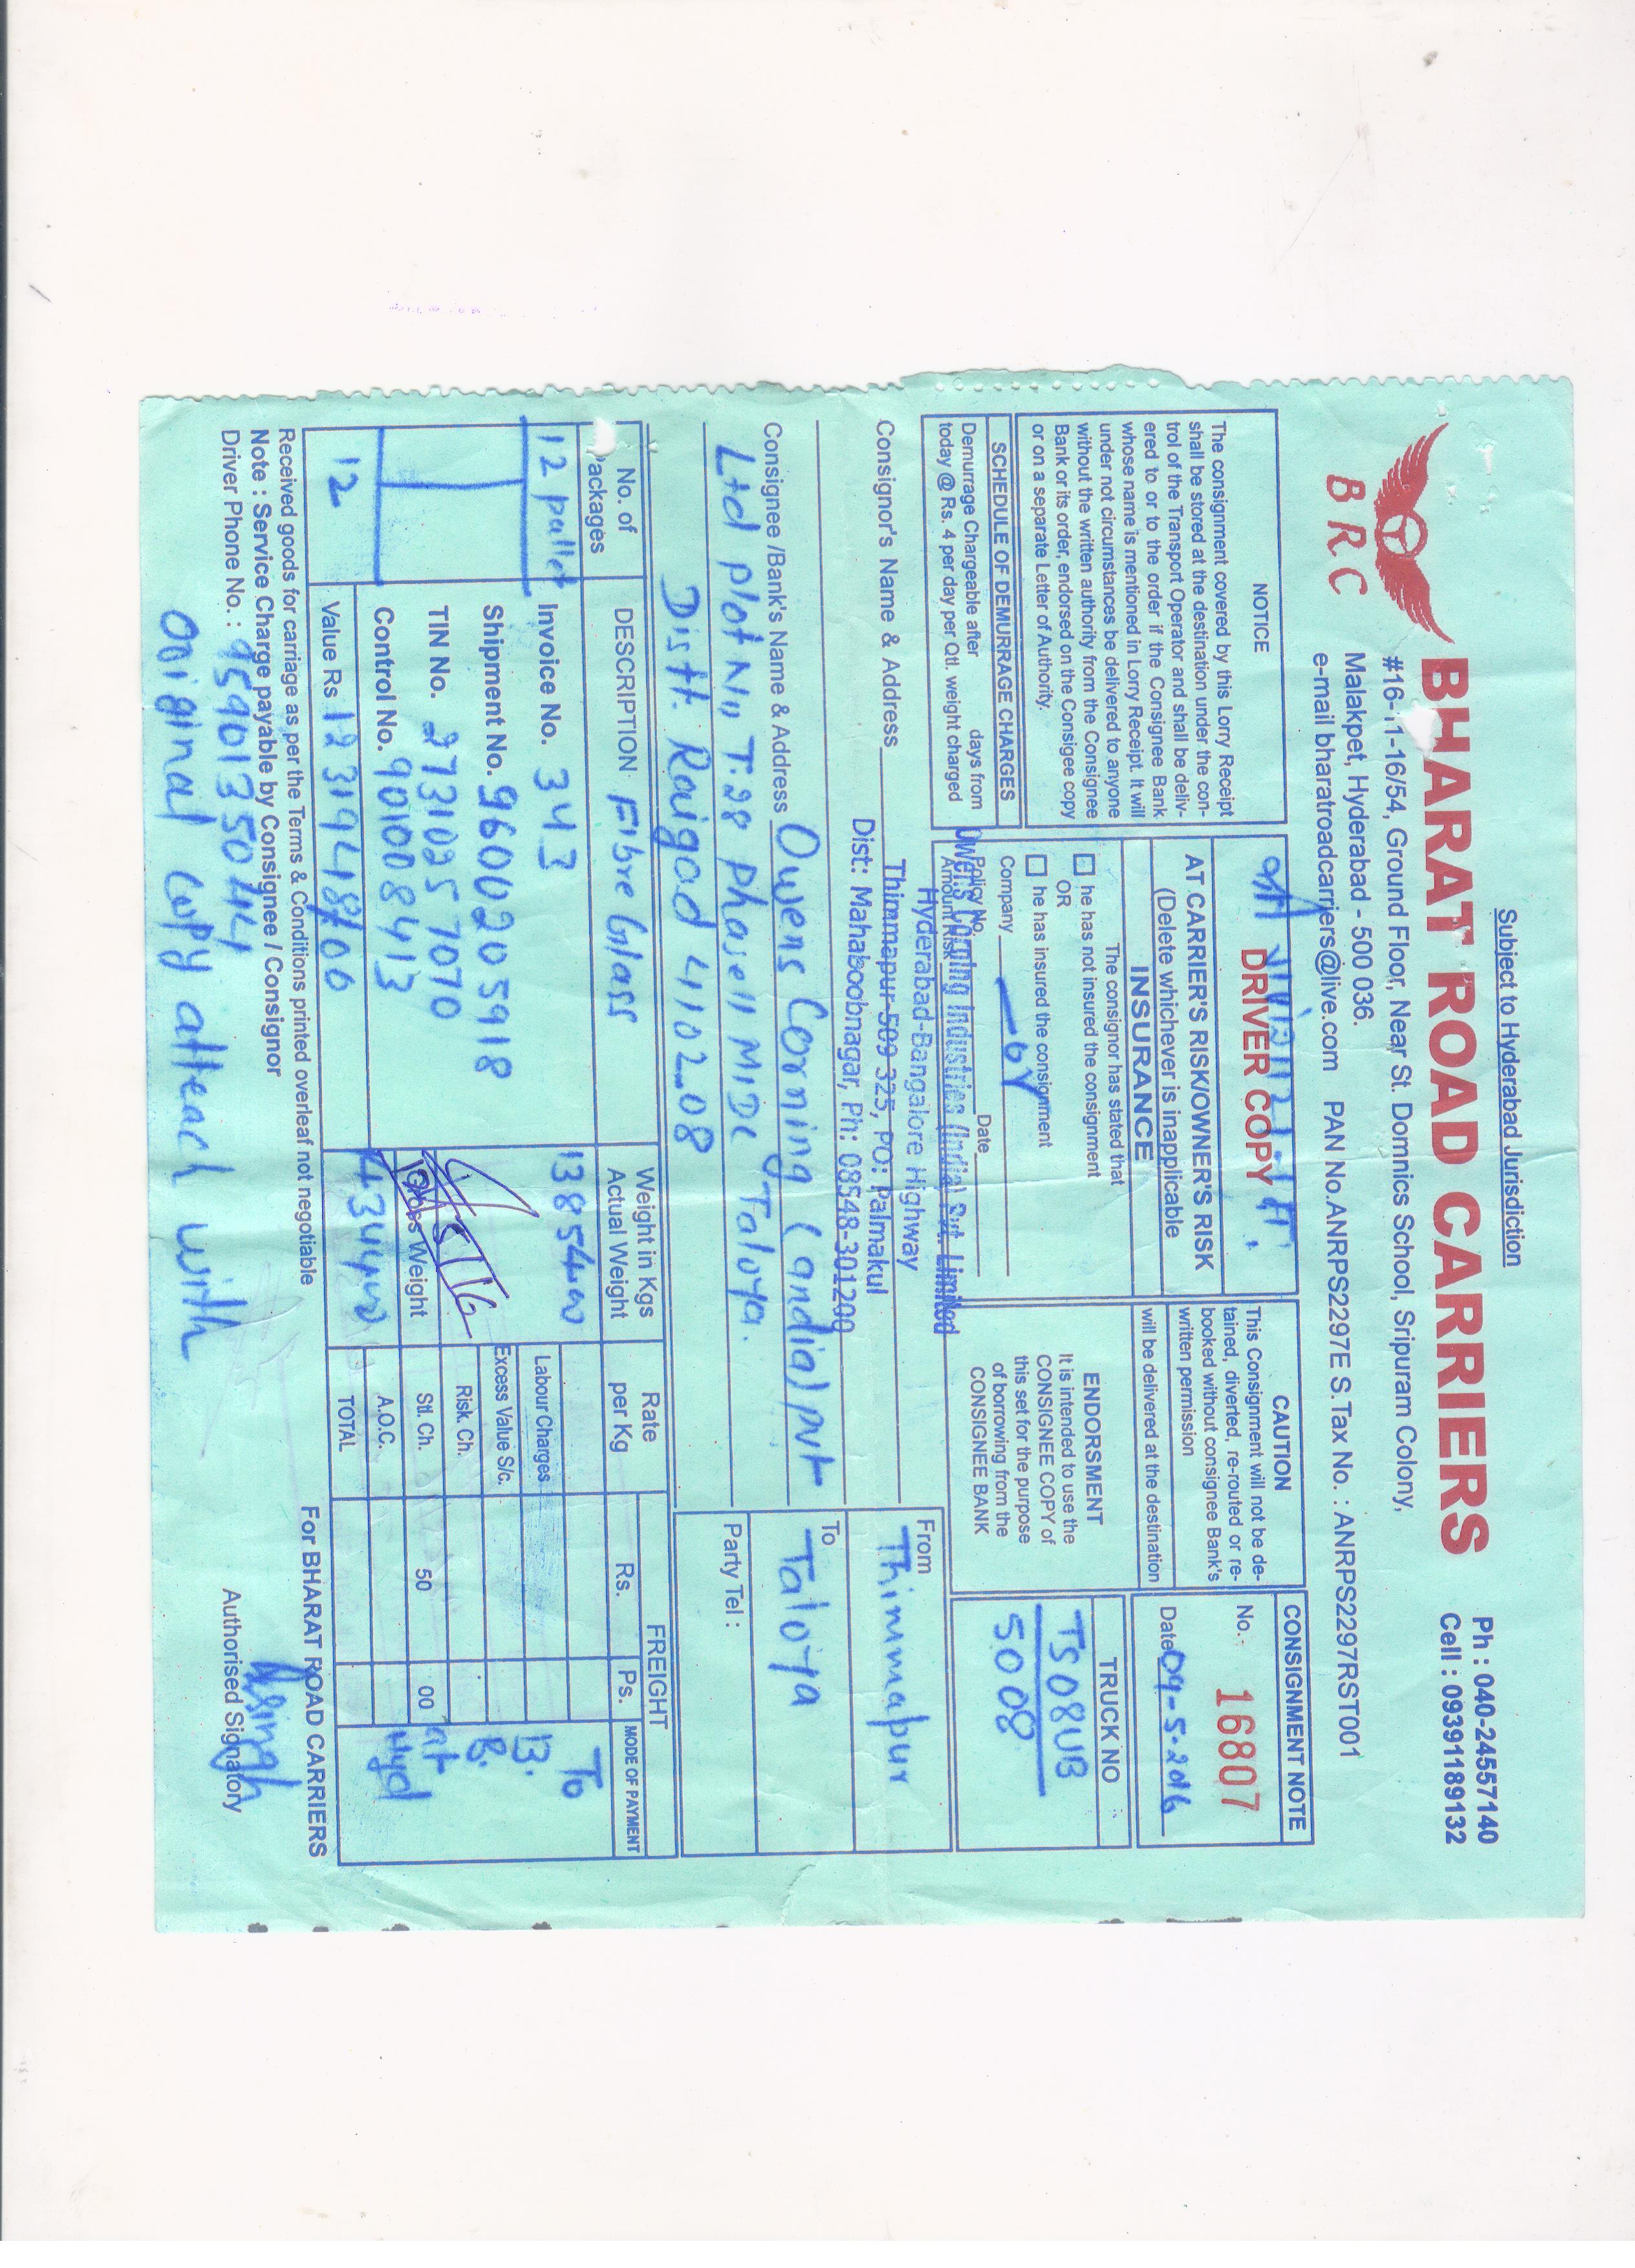 Subject to Hyderabad Jurisdiction
Ph : 040-24557140
Cell : 09391189132
BHARAT ROAD CARRIERS
B R C
#16-11-16/54, Ground Floor, Near St. Domnics School, Sripuram Colony,
Malakpet, Hyderabad - 500 036.
e-mail bharatroadcarriers@live.com PAN No.ANRPS2297E S.Tax No. : ANRPS2297RST001
NOTICE
The consignment covered by this Lorry Receipt
shall be stored at the destination under the con-
trol of the Transport Operator and shall be deliv-
ered to or to the order if the Consignee Bank
whose name is mentioned in Lorry Receipt. It will
under not circumstances be delivered to anyone
without the written authority from the Consignee
Bank or its order, endorsed on the Consigee copy
or on a separate Letter of Authority.
SCHEDULE OF DEMURRAGE CHARGES
Demurrage Chargeable after days from
today @ Rs. 4 per day per Qtl. weight charged
DRIVER COPY
AT CARRIER'S RISK/OWNER'S RISK
(Delete whichever is inapplicable
INSURANCE
The consignor has stated that
he has not insured the consignment
OR
he has insured the consignment
Company
Policy No. Date
Amount Risk
CAUTION
This Consignment will not be de-
tained, diverted, re-routed or re-
booked without consignee Bank's
written permission
will be delivered at the destination
ENDORSMENT
It is intended to use the
CONSIGNEE COPY of
this set for the purpose
of borrowing from the
CONSIGNEE BANK
CONSIGNMENT NOTE
No. 16807
Date 09-5-2016
TRUCK NO
TS08UB
5008
Owens Corning Industries (India) Pvt. Limited
Hyderabad-Bangalore Highway
Consignor's Name & Address Thimmapur-509 325, PO: Palmakul
Dist: Mahaboobnagar, Ph: 08548-301200
From
Thimmapur
Consignee /Bank's Name & Address Owens Corning (India) Pvt
Ltd Plot No, T.28 Phase II MIDC Taloya.
Distt. Raigad 410208
To
Taloya
Party Tel :
No. of Packages
DESCRIPTION Fibre Glass
Weight in Kgs
Actual Weight
Rate per Kg
FREIGHT
Rs. Ps.
MODE OF PAYMENT
12 pallet
Invoice No. 343
Shipment No. 9600205918
TIN No. 27310257070
Control No. 901008413
12
Value Rs 1231948/00
Gross Weight
Labour Charges
Excess Value S/c.
Risk. Ch.
Stl. Ch. 50 00
A.O.C.
TOTAL
To
B.
B.
at
Hyd
Received goods for carriage as per the Terms & Conditions printed overleaf not negotiable
Note : Service Charge payable by Consignee / Consignor
Driver Phone No. : 9590135044
Original Copy atteach with
For BHARAT ROAD CARRIERS
Authorised Signatory